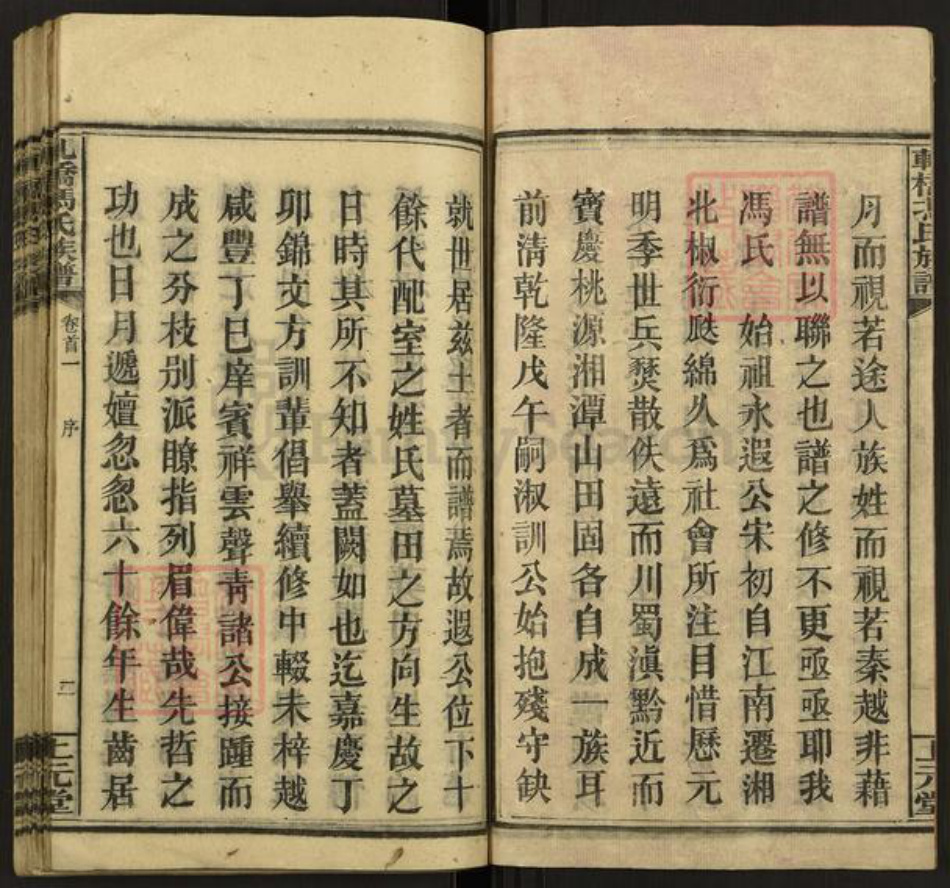 月而視若途人族姓而視若秦越非藉
譜無以聯之也譜之修不更亟亟耶我
馮氏　始祖永遐公宋初自江南遷湘
北椒衍瓞綿久爲社會所注目惜歷元
明季世兵燹散佚遠而川蜀滇黔近而
寶慶桃源湘潭山田固各自成一族耳
前淸乾隆戊午嗣淑訓公始抱殘守缺
就世居玆土者而譜焉故遐公位下十
餘代配室之姓氏墓田之方向生故之
日時其所不知者蓋闕如也迄嘉慶丁
卯錦文方訓輩倡舉續修中輟未梓越
咸豐丁巳庠賓祥雲聲靑諸公接踵而
成之分枝别派瞭指列眉偉哉先哲之
功也日月遞嬗忽忽六十餘年生齒居
馮氏族譜
卷首一
序
二
上元堂